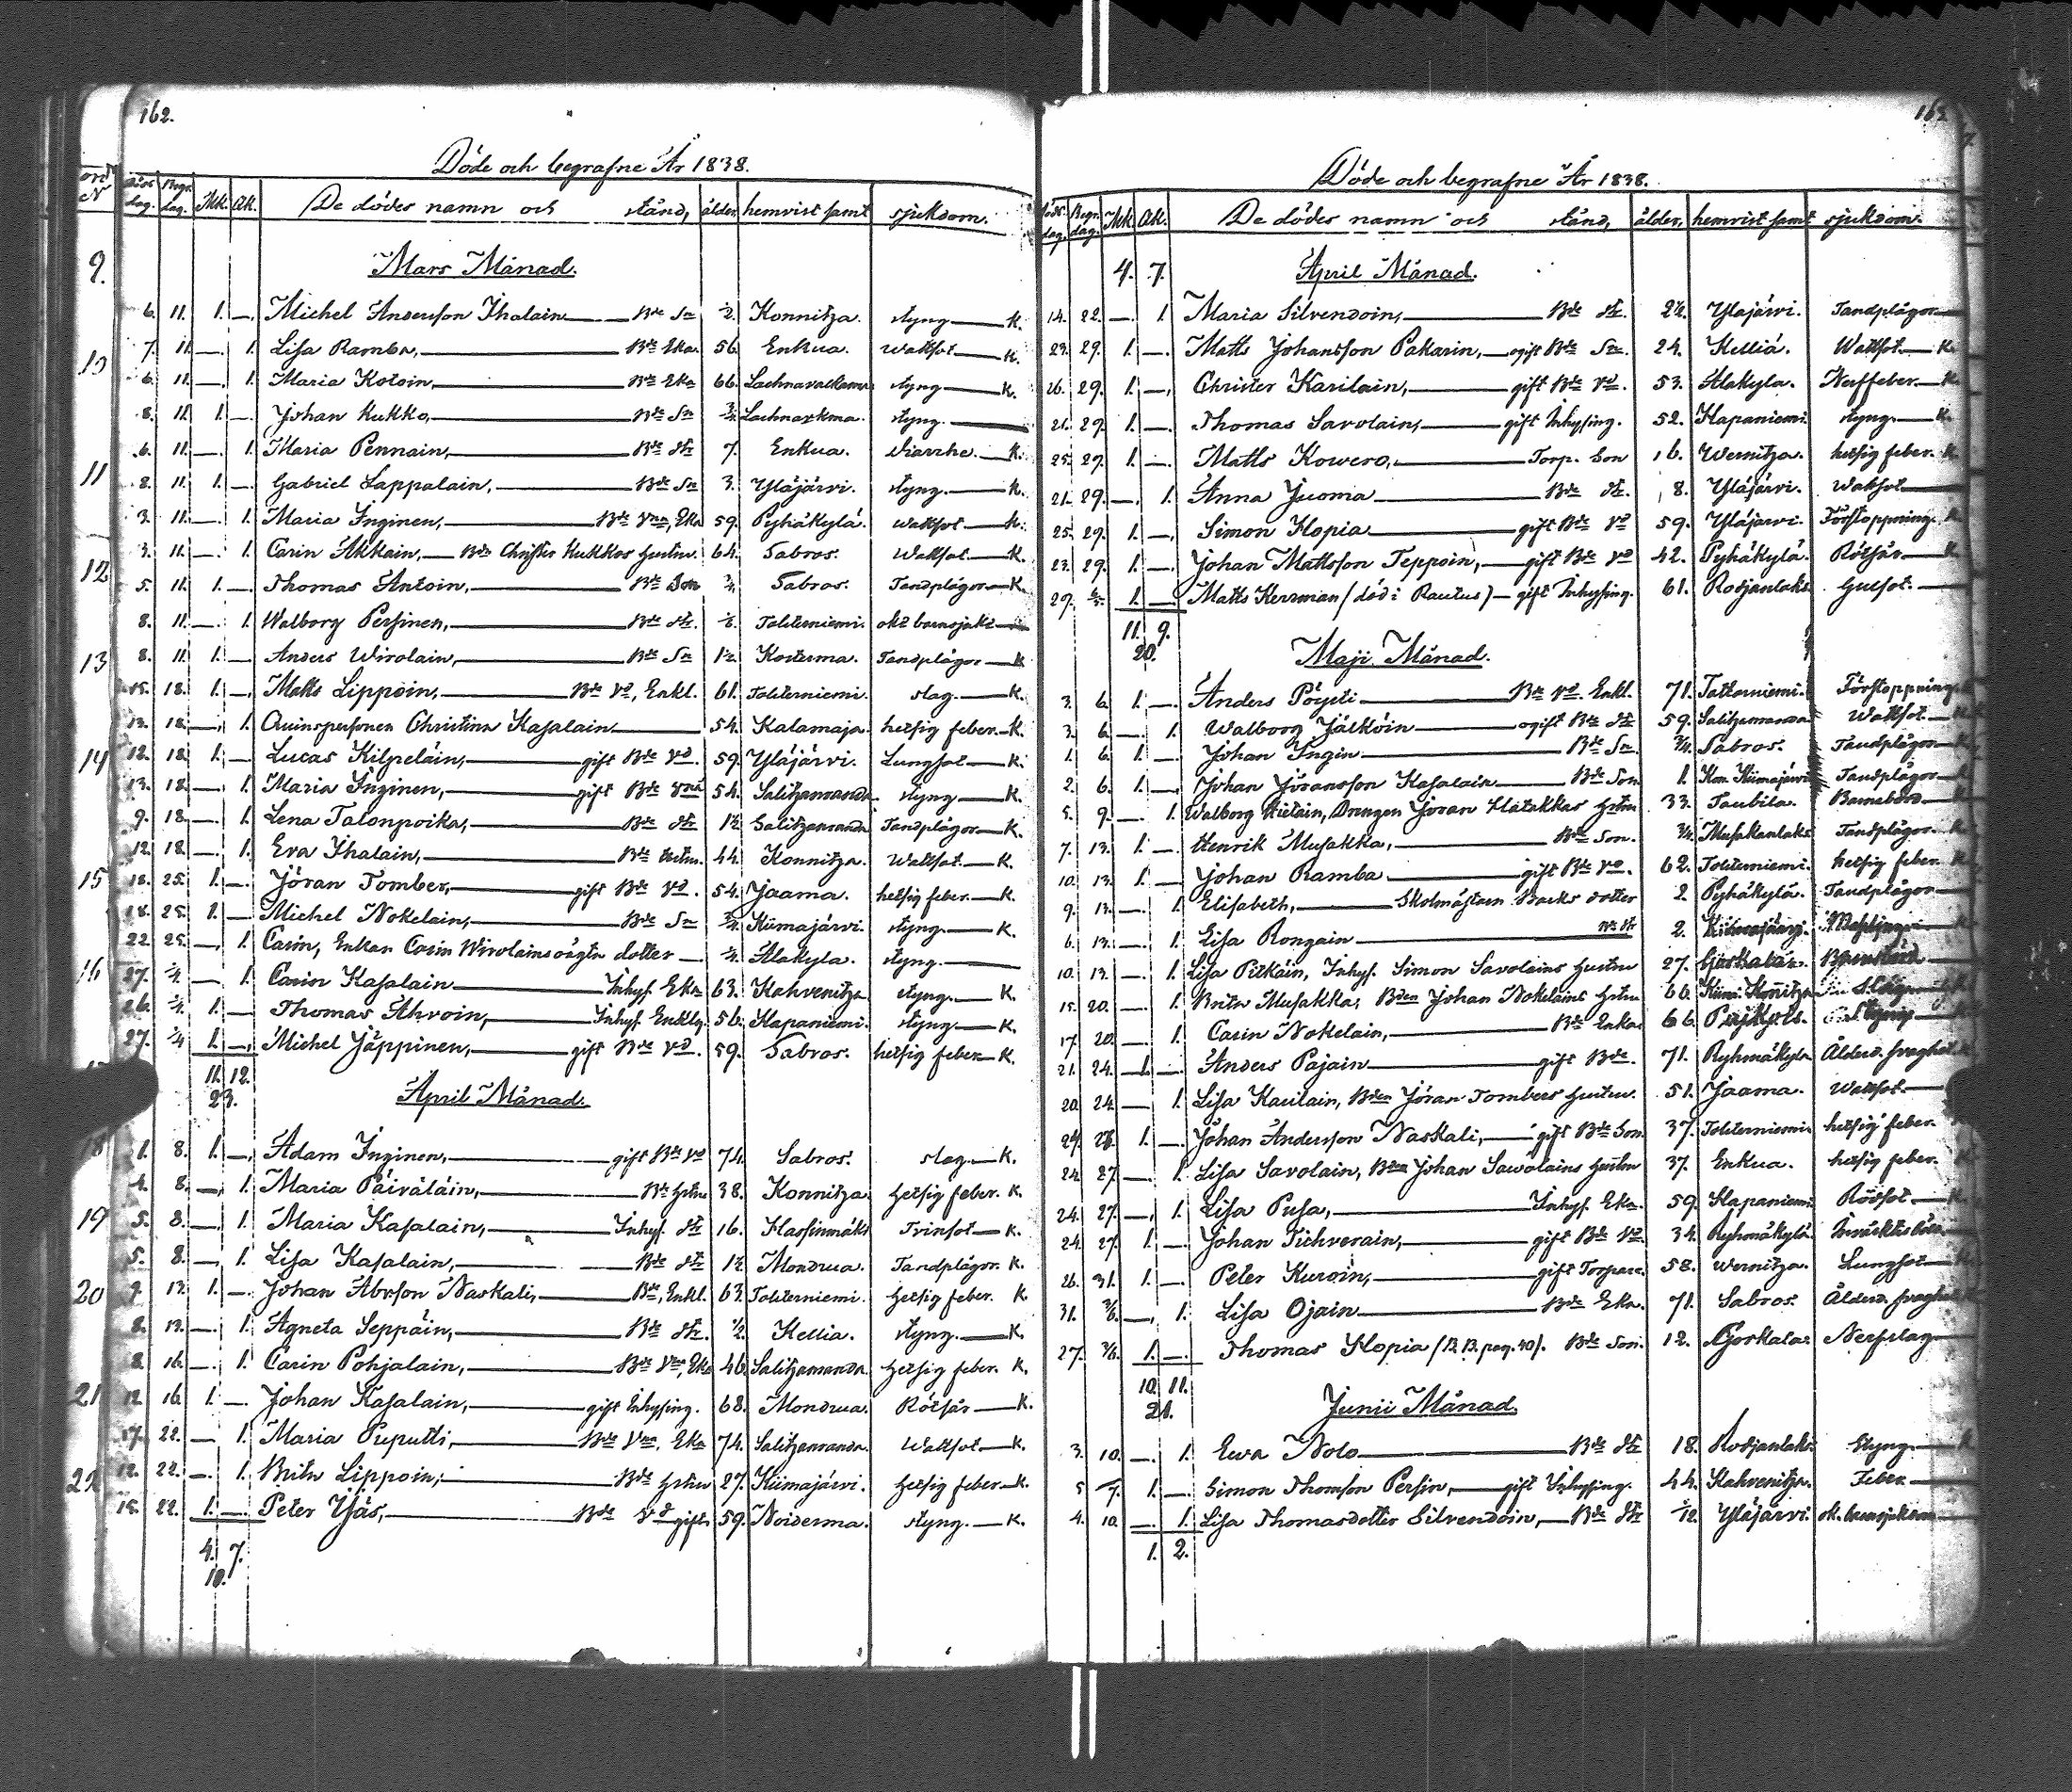 162.
Döde och begrafne År 1838.
Död dag. Begr. dag. Mk. Qk. De dödes namn och stånd, ålder, hemvist samt sjukdom.
9.
Mars Månad.
6. 11. 1. — Michel Andersson Ihalain Bde Sn ½. Konnitza. styng K.
7. 11. — 1. Lisa Ramba, Bde Eka. 56. Enkua. Wattsot K.
10
6. 11. — 1. Maria Kotoin, Bde Eka 66. styng K.
8. 11. 1. — Johan Kukko, Bde Sn ¾. styng.
6. 11. — 1. Maria Pennain, Bde dtr 7. Enkua. diarrhe. K.
11
8. 11. 1. — Gabriel Lappalain, Bde Sn 3. Yläjärvi. styng. K.
3. 11. — 1. Maria Inginen, Bde Vna, Eka 59. Pyhäkylä. Wattsot K.
3. 11. — 1. Carin Akkain, Bdn Christer Kukkos hustru. 64. Sabros. Wattsot. K.
12
5. 11. 1. — Thomas Antoin, Bde Son Sabros. Tandplågor K.
8. 11. — 1. Walborg Persinen, Bde dtr. Tolterniemi. okt barnsjukt
13
8. 11. 1. — Anders Wirolain, Bde Sn 1½. Kosterma. Tandplågor K
15. 18. 1. — Matts Lippoin, Bde Vd, Enkl. 61. Tolterniemi. slag. K.
13. 18. — 1. Quinspersonen Christina Kasalain 54. Kalamaja. hetsig feber. K.
14
12. 18. 1. — Lucas Kilpeläin, gift Bde Vd. 59. Yläjärvi. Lungsot K.
13. 18. — 1. Maria Inginen, gift Bde Vna 54. Salitzanranda. styng K.
9. 18. — 1. Lena Talonpoika, Bde dtr 1½ Salitzanranda Tandplågor K.
12. 18. — 1. Eva Ihalain, Bde hustru. 44. Konnitza. Wattsot. K.
15
18. 25. 1. — Jöran Tomber, gift Bde Vd. 54. Jaama. hetsig feber. K.
18. 25. 1. — Michel Nokelain, Bde Sn ¾. Kiimajärvi. styng. K.
22. 25. — 1. Carin, Enkan Carin Wirolains oägta dotter ¼. Alakyla. styng.
16
27. ¼. — 1. Carin Kasalain Inhys. Eka 63. Kahvenitza styng. K.
26. ¼. 1. — Thomas Ahvoin, Inhys. Enklg. 56. Hapaniemi. styng K.
27. ¼ 1. — Michel Jäppinen, gift Bde Vd. 59. Sabros. hetsig feber K.
11. 12.
23.
April Månad.
18
1. 8. 1. — Adam Inginen, gift Bde Vd 74. Sabros. slag. K.
4. 8. — 1. Maria Päiväläin, Bde hstru 38. Konnitza. hetsig feber. K.
19
5. 8. — 1. Maria Kasalain, Inhys. dtr 16. Hassinmäki Trinsot K.
5. 8. — 1. Lisa Kasalain, Bde dtr 1½ Mondrua. Tandplågor. K.
20
9. 13. 1. — Johan Abrson Naskali, Bde, Enkl. 63. Tolterniemi. hetsig feber. K
8. 13. — 1. Agneta Seppäin, Bde dtr. ½. Kellia. styng. K.
8. 16. — 1. Carin Pohjalain, Bde Vna, Eka 46. Salitzanranda. hetsig feber. K.
21
12. 16. 1. — Johan Kasalain, gift Inhysing. 68. Mondrua. Rötfär K.
17. 22. — 1. Maria Puputti, Bde Vna, Eka 74. Salitzanranda. Wattsot K.
22
12. 22. — 1. Brita Lippoin, Bde hstru 27. Kiimajärvi. hetsig feber. K.
15. 22. 1. — Peter Wäs, Bde Vd gift 59. Noiderma. styng. K.
4. 7.
10.
Döde och begrafne År 1838.
Död dag. Begr. dag. Mk. Qk. De dödes namn och stånd, ålder, hemvist samt sjukdom.
4. 7. April Månad.
14. 22. — 1. Maria Silvendoin, Bde dtr. 2½. Yläjärvi. Tandplågor
23. 29. 1. — Matts Johansson Pakarin, ogift Bde Sn. 24. Kelliä. Wattsot K.
26. 29. 1. — Christer Karilain, gift Bde Vd. 53. Alakyla. Nerffeber. K.
21. 29. 1. — Thomas Savolain, gift Inhysing. 52. Hapaniemi. styng. K.
25. 29. 1. — Matts Kowero, Torp. Son 16. Wernitza. hetsig feber. K
21. 29. — 1. Anna Juoma Bde dtr. 8. Yläjärvi. Wattsot
25. 29. 1. — Simon Hopia gift Bde Vd 59. Yläjärvi. Förstoppning. K
23. 29. 1. — Johan Mattsson Teppoin, gift Bde Vd 42. Pyhäkylä. Rötfär K.
29. 1. — Matts Kerrman (död i Rautus) gift Inhysing. 61. Rodjanlaks. Gulsot.
11. 9.
20.
Maji Månad.
3. 6. 1. — Anders Pöysti Bde Vd. Enkl. 71. Tolterniemi. Förstoppning.
3. 6. — 1. Walborg Jälköin ogift Bde dtr 59. Salitzanranda Wattsot K
1. 6. 1. — Johan Ingin Bde Sn. ¾. Sabros. Tandplågor K
2. 6. 1. — Johan Jöransson Kasalain Bde Son 1. Kiimajärvi Tandplågor K
5. 9. — 1. Walborg Hietain, Drengen Jöran Hatakkas hstru 33. Taubila. Barnsbörd K
7. 13. 1. — Henrik Musakka, Bde Son. ¾. Musakanlaks Tandplågor. K
10. 13. 1. — Johan Ramba gift Bde Vd. 62. Tolterniemi. hetsig feber. K
9. 13. — 1. Elisabeth, Skolmästarn Backs dotter 2. Pyhäkylä. Tandplågor
6. 13. — 1. Lisa Rongain Bde dtr 2.
10. 13. — 1. Lisa Pitkäin, Inhys. Simon Savolains hustru 27.
15. 20. — 1. Brita Musakka, Bden Johan Nokelains hstru 60.
17. 20. — 1. Carin Nokelain, Bde Enka 66.
21. 24. 1. — Anders Pajain gift Bde. 71. Ryhmäkylä Ålderd. svaghet K
20. 24. — 1. Lisa Kauilain, Bden Jöran Tombers hustru. 51. Jaama. Wattsot.
24. 28. 1. — Johan Andersson Naskali, gift Bde Son. 37. Tolterniemi. hetsig feber.
24. 27. — 1. Lisa Savolain, Bden Johan Sawolains hustru 37. Enkua. hetsig feber. K
24. 27. — 1. Lisa Pusa, Inhys. Eka. 59. Hapaniemi Rödsot K
24. 27. 1. — Johan Tichverain, gift Bde Vd 34. Ryhmäkylä.
26. 31. 1. — Peter Kuroin, gift Torpare. 58. Wernitza. Lungsot K
31. 3/6. — 1. Lisa Ojain Bde Eka. 71. Sabros. Ålderd. svaghet
27. 3/6. 1. — Thomas Hopia (B.B. pag. 40). Bde Son. 12. Gorkala. Nerfslag
10. 11.
21.
Junii Månad.
3. 10. — 1. Ewa Nolo Bde dtr 18. Rodjanlaks. Styng. K
5. 7. 1. — Simon Thomson Persin, gift Inhysing. 44. Kahvenitza. Feber.
4. 10. — 1. Lisa Thomasdotter Silvendoin, Bde dtr Yläjärvi. ok. barnsjukdom
1. 2.